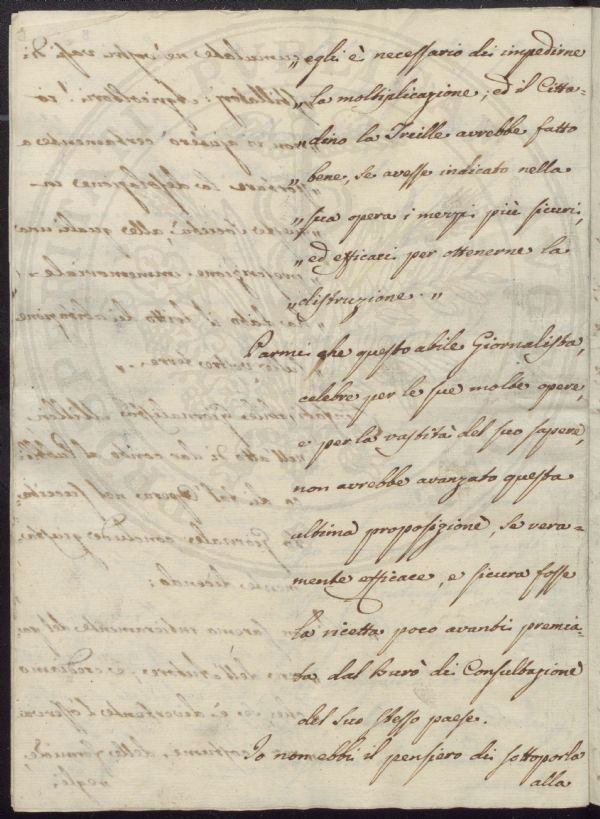 „ egli è necessario di impedirne
„ la moltiplicazione; ed il Citta=
„ dino la Treille avrebbe fatto
„ bene, se avesse indicato nella
„ sua opera i mezzi più sicuri,
„ ed efficaci per ottenerne la
„ distruzione. „
Parmi che questo abile Giornalista,
celebre per le sue molte opere,
e per la vastità del suo sapere,
non avrebbe avanzato questa
ultima proposizione, se vera=
mente efficace, e sicura fosse
la ricetta poco avanti premia=
ta dal Burò di Consultazione
del suo stesso paese.
Io non ebbi il pensiero di sottoporla
alla